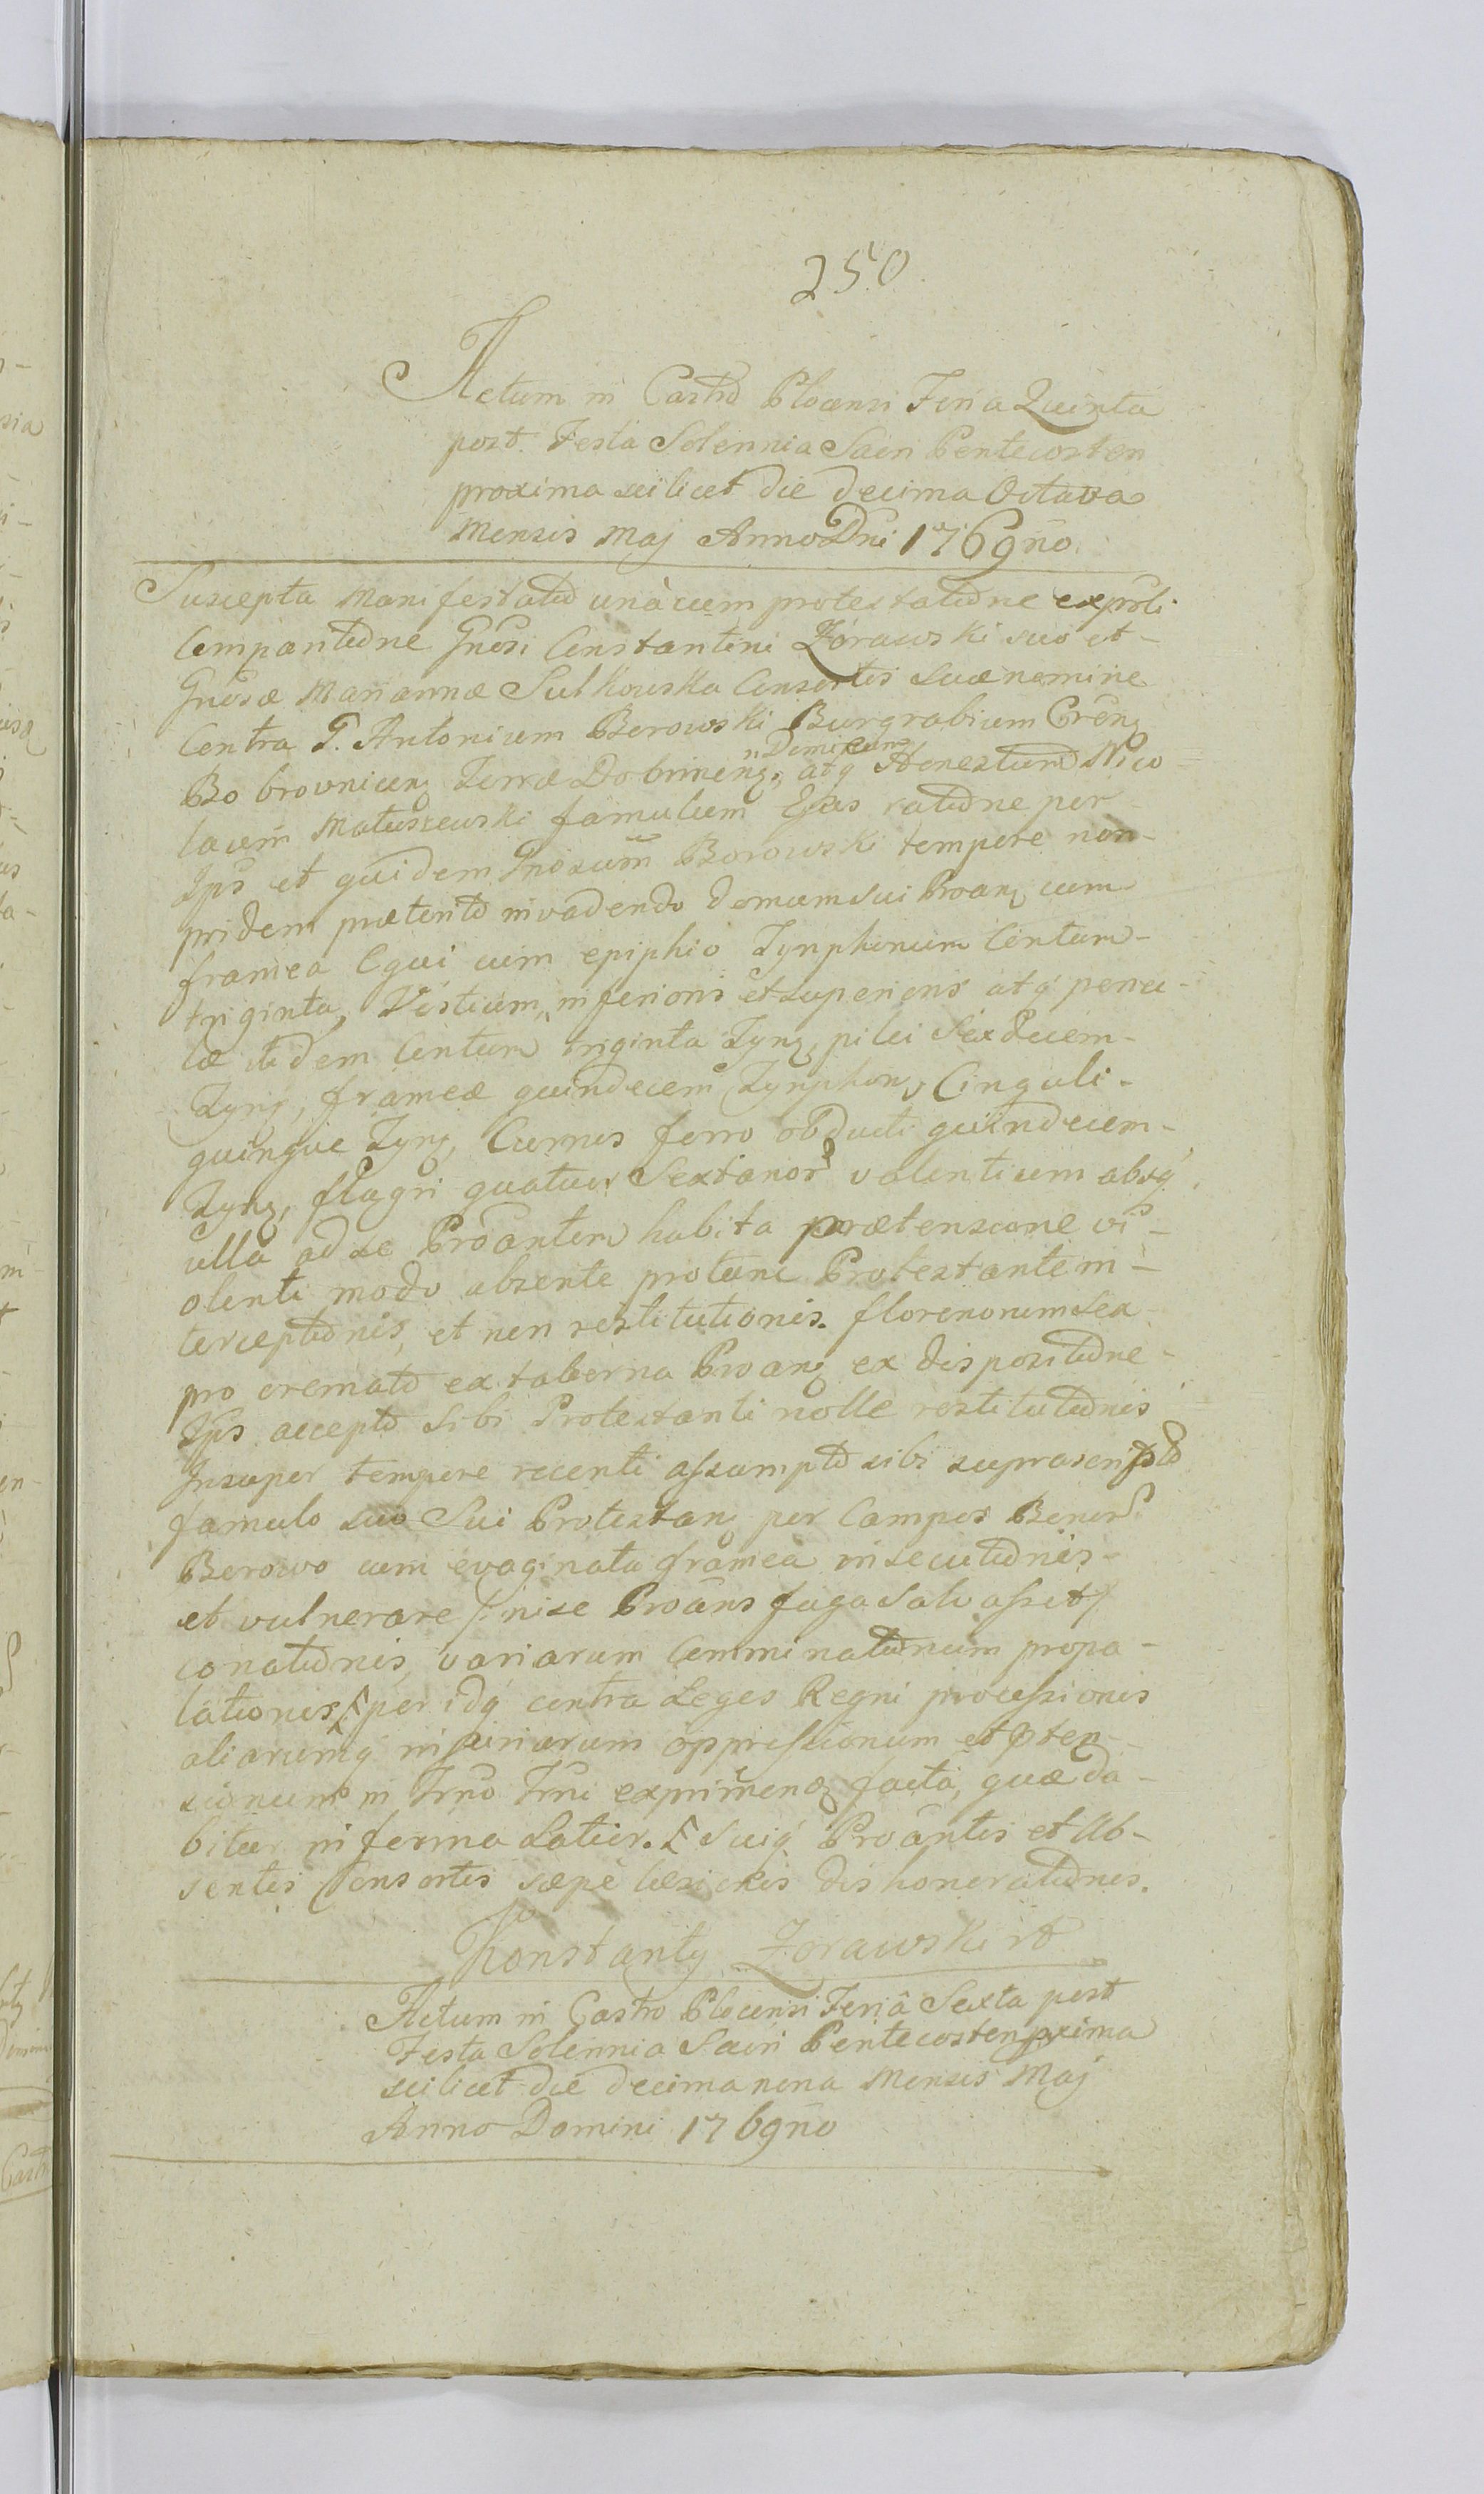 250
Actum in Castro Plocensi Feria Quinta
post Festa Solennia Sacri Pentecosten
proxima scilicet die decima Octava
Mensis Maj Anno Dni 1769no
Suscepta Manifestatio unàcum protestatione ex psoli
Comparitione Gnosi Constantini Zorawski suo et
Gnosæ Mariannæ Sulkowska Consortis suæ nomine
Contra G. Antonium Borowski Burgrabium Cren
Bobrovnicen Terræ Dobrinen, atq Honestum Nico-
Dominum
laum Matuszewski famulum Ejus ratione per
Ips et quidem Gnosum Borowski tempore non-
pridem præterito invadendo domum sui Proan cum
framea Equi cum epiphio Tynphonum Centum-
triginta, Vestium, inferioris et superioris atq penu-
læ itidem Centum triginta Tyn, pilei Sexdecem-
Tyn, frameæ quindecem Tynphon, Cinguli-
quinque Tyn, Currus ferro obducti quindecem-
Tyn, flagri quatuor Sextanor valentium absq
ulla ad se Proantem habita prætensione vi-
olenti modo absente protunc Protestante in-
terceptionis, et non restitutionis. florenorum sex
pro cremato ex taberna Proan ex dispositione-
Ips accepto sibi Protestanti nolle restitutionis
Insuper tempore recenti assumpto sibi suprascripto
famulo suo Sui Protestan per Campos Bonor
Borowo cum evaginata framea insecutionis-
et vulnerare /: nise Proans fuga salvasset :/
conationis, variarum Comminationum propa-
lationis, per idq contra Leges Regni processionis
aliarumq injuriarum oppressionum et pten-
sionum in Trno Trni expriment facta, quæ da-
bitur in forma Latior. Suiq Proantis et Ab-
sentis Consortis sæpè læsionis dishonorationis.
Konstanty Zorawski
Actum in Castro Plocensi Feriâ Sexta post
Festa Solennia Sacri Pentecosten pxima
scilicet die decima nona Mensis Maj
Anno Domini 1769no